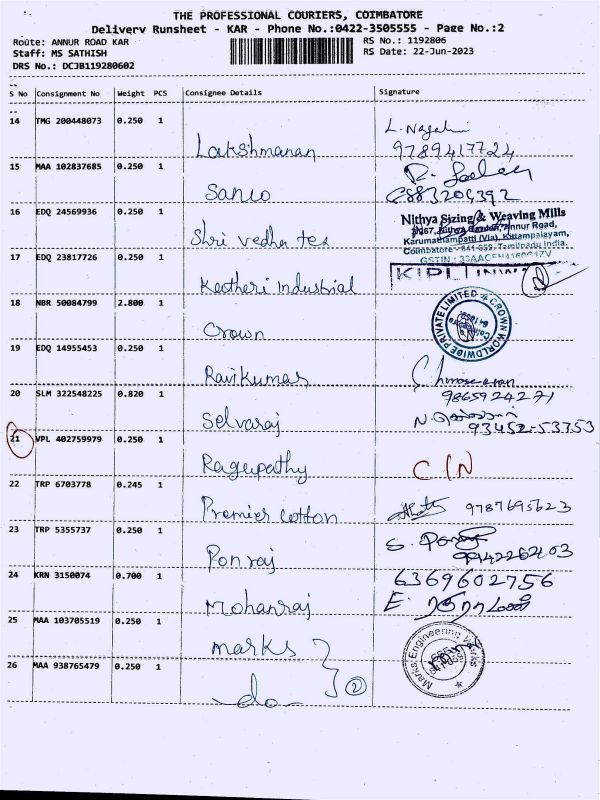 THE PROFESSIONAL COURIERS, COIMBATORE
Delivery Runsheet - KAR - Phone No.:0422-3505555 - Page No.:2
Route: ANNUR ROAD KAR
RS No.: 1192806
Staff: MS SATHISH
RS Date: 22-Jun-2023
DRS No.: DCJB119280602
S No Consignment No Weight PCS Consignee Details Signature
14 TMG 200448073 0.250 1
Lakshmanan
9789417724
15 MAA 102837685 0.250 1
Sanco
16 EDQ 24569936 0.250 1
Shri vedha tex
Nithya Sizing & Weaving Mills
Annur Road,
Karumathampatti (Via), Kittampalayam,
Coimbatore - 641 659. Tamilnadu India.
17 EDQ 23817726 0.250 1
Keotheri Industrial
KIPL
18 NBR 50084799 2.800 1
Crown
CROWN WORLDWIDE PRIVATE LIMITED
19 EDQ 14955453 0.250 1
Ravikumar
20 SLM 322548225 0.820 1
Selvaraj
9865924271
93452-53753
21 VPL 402759979 0.250 1
Ragupathy
C/N
22 TRP 6703778 0.245 1
Premier cotton
9787695623
23 TRP 5355737 0.250 1
Ponraj
24 KRN 3150074 0.700 1
Mohanraj
6369602756
25 MAA 103705519 0.250 1
marks
Marks Engineering Works
26 MAA 938765479 0.250 1
do
2